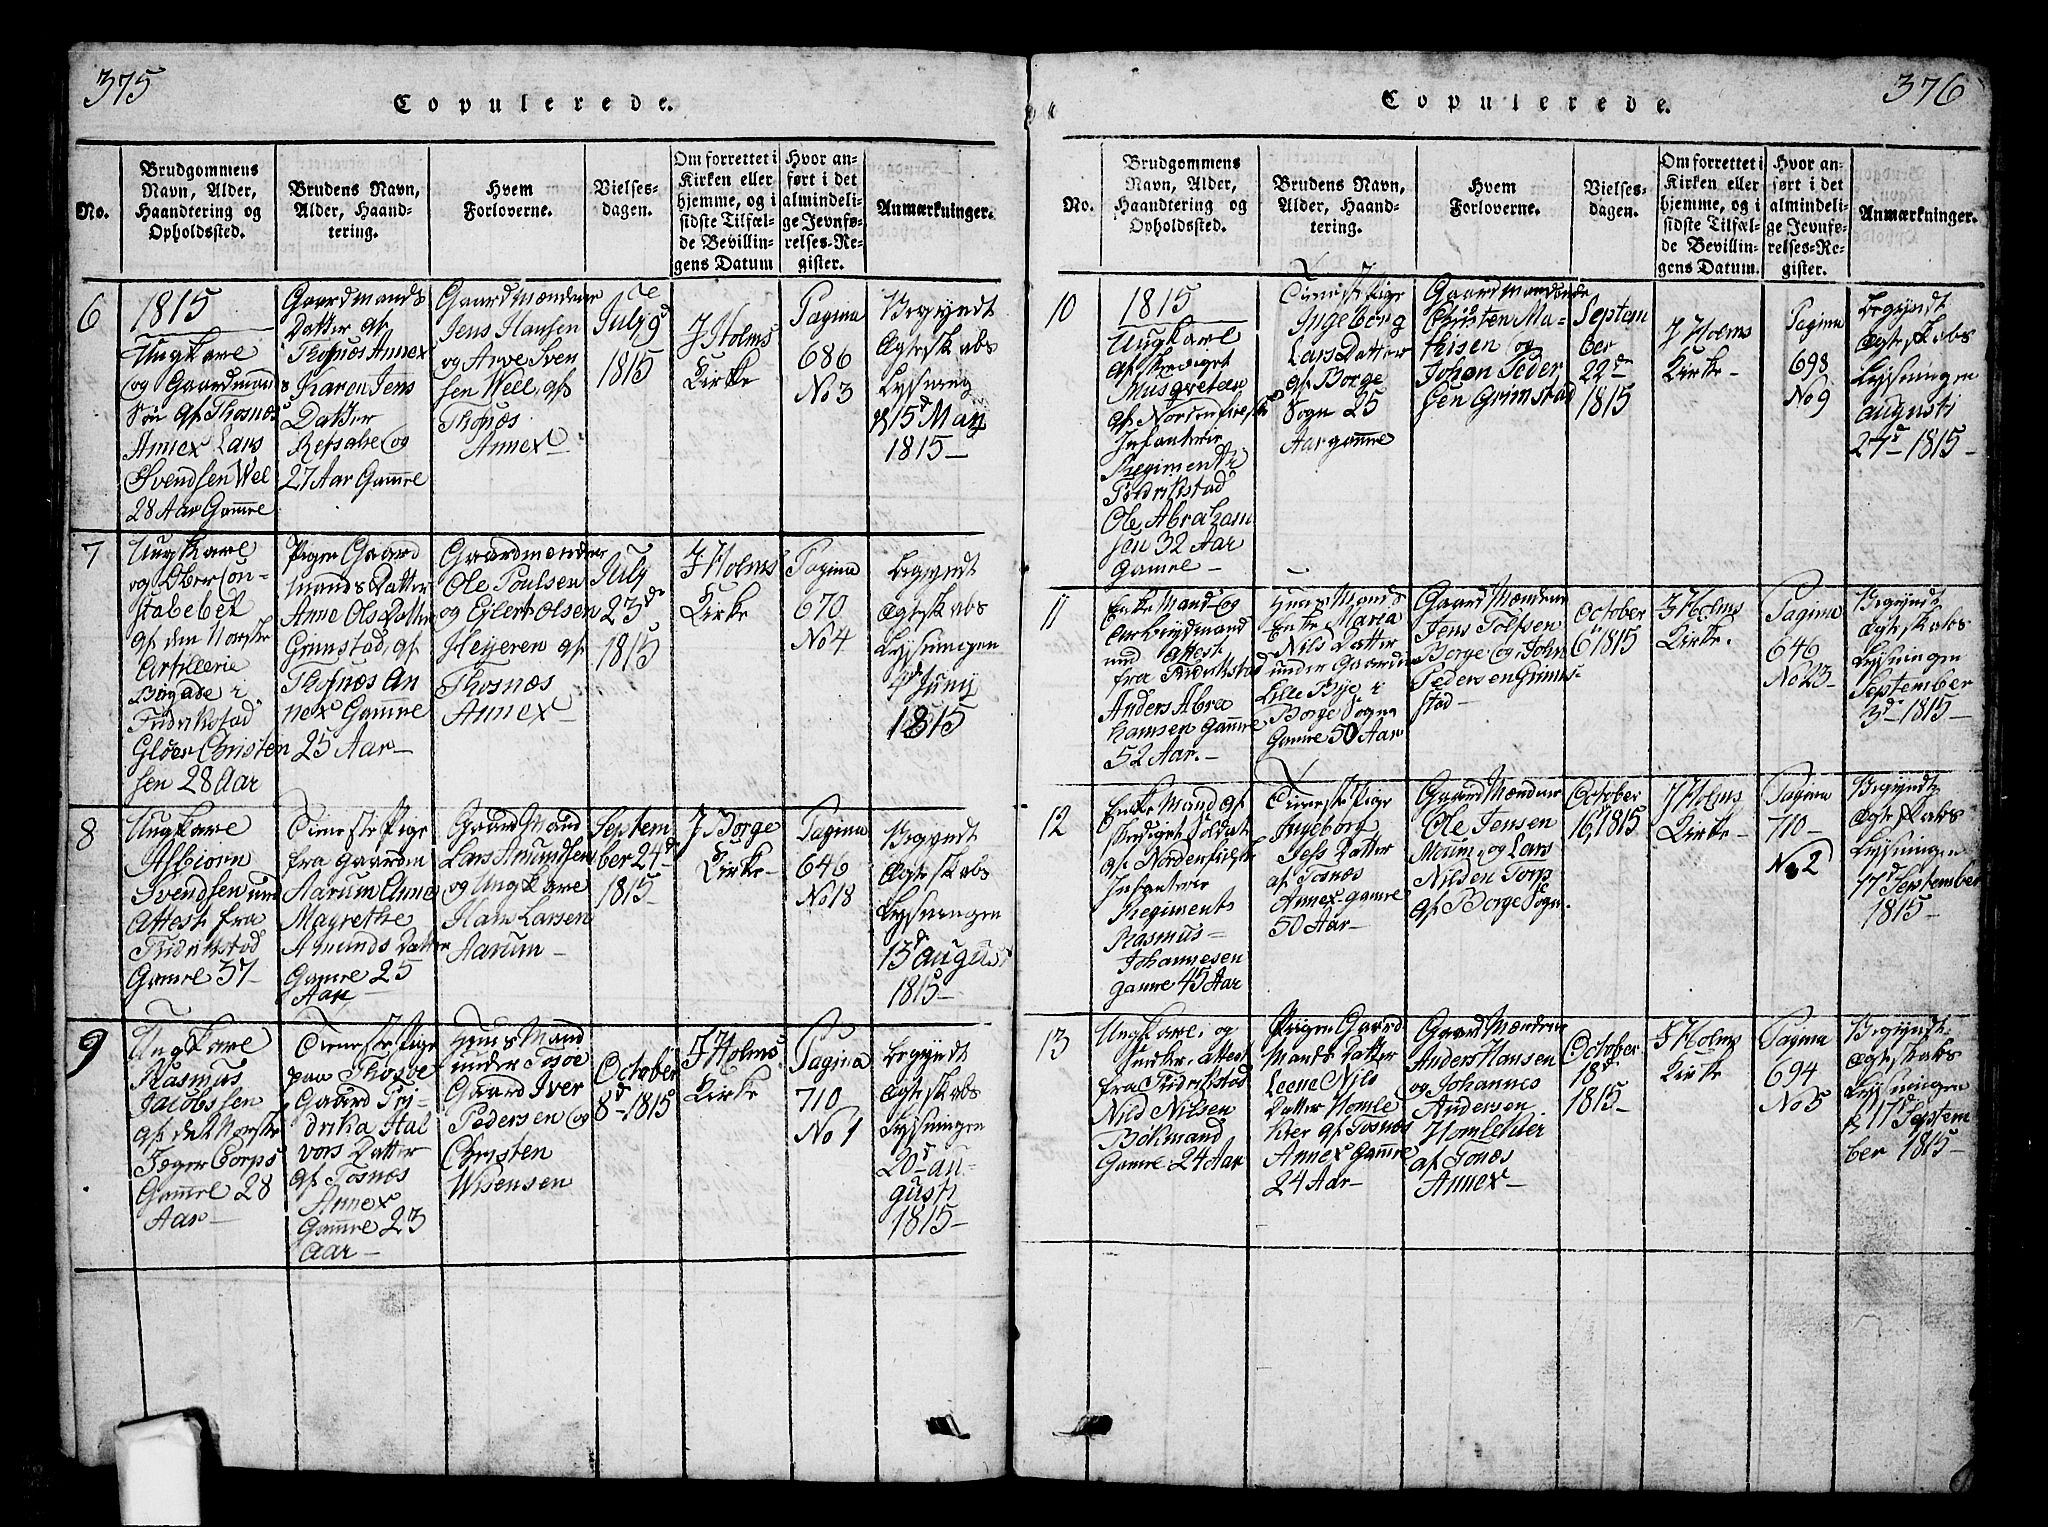 375
Copulerede.
No.
Brudgommens
Navn, Alder,
Haandtering og
Opholdssted.
Brudens Navn,
Alder, Haand-
tering.
Hvem
Forloverne.
Vielses-
dagen.
Om forrettet i
Kirken eller
hjemme, og i
sidste Tilfæl-
de Bevillin-
gens Datum
Hvor an-
ført i det
almindeli-
ge Jevnfø-
relses-Re-
gister.
Anmærkninger.
6
1815
Ungkarl
og Gaardmands
Søn af Thosnæs
Annex Lars
Svendsen Wel
28 Aar Gamle
Gaardmands
Datter af
Thosnæs Annex
Karen Jens
Datter
og
27 Aar Gamle
Gaardmændene
Jens Hansen
og Arve Sven
sen Weel, af
Thosnæs
Annex
July 9de
1815
J Holms
Kirke
Pagina
686
No 3
Begyndt
Ægteskabs
Lysning
15d May
1815
7
Ungkarl
og Ober Con-
stabebel
af den Norske
Artillerie
Brigade i
Fridrikstad
Gloer Christen
sen 28 Aar
Pigen Gaard
mands Datter
Anne Ols Datter
Grimstad, af
Thosnæs An
nex Gamle
25 Aar
Gaardmændene
Ole Poulsen
og Ejlert Olsen
Heyeren af
Thosnæs
Annex
July
23de
1815
J Holms
Kirke
Pagina
670
No 4
Begyndt
Ægteskabs
Lysningen
4d Junij
1815
8
Ungkarl
Asbiörn
Svendsen med
Attest fra
Fridrikstad
Gamle 37
Tieneste Pige
fra Gaarden
Aarum Anne
Magrethe
Amunds Datter
Gamle 25
Aar
Gaard Mand
Lars Amundsen
og Ungkarl
Hans Larsen
Aarum
Septem
ber 24d
1815
J Borge
Kirke
Pagina
646
No 18
Begyndt
Ægteskabs
Lysningen
13d august
1815
9
Ungkarl
Rasmus
Jacobsen
af det Norske
Jæger Corps
Gamle 28
Aar
Tieneste Pige
paa Thosöe
Gaard Fry-
drika Hal
vors Datter
af Tosnæs
Annex
Gamle 23
Aar
Huus Mand
under Tosöe
Gaard Iver
Pedersen og
Christen
Wisensen
October
8d 1815
J Holms
Kirke
Pagina
710
No 1
Begyndt
Ægteskabs
Lysningen
20d au-
gusti
1815
376
Copulerede.
No.
Brudgommens
Navn, Alder,
Haandtering og
Opholdssted.
Brudens Navn,
Alder, Haand-
tering.
Hvem
Forloverne.
Vielses-
dagen.
Om forrettet i
Kirken eller
hjemme, og i
sidste Tilfæl-
de Bevillin-
gens Datum.
Hvor an-
ført i det
almindeli-
ge Jevnfø-
relses-Re-
gister.
Anmærkninger.
10
1815
Ungkarl
Musqveteer
af Nordenfielske
Infanterie
Regiment i
Fridrikstad
Ole Abraham
sen 32 Aar
Gamle
Tieneste Pige
Ingeborg
Lars Datter
af Borge
Sogn 25
Aar gamle
Gaardmændene
Christen Ma-
thisen og
Johan Peder
sen Grimstad
Septem
ber
22d
1815
J Holms
Kirke
Pagina
698
No 9
Begyndt
Ægteskabs
Lysningen
augusti
27d 1815
11
Enke Mand og
Arbeydmand
med Attest
fra Fridrikstad
Anders Abra
hamsen Gamle
52 Aar.
Huus Mands
Enke Maria
Nils Datter
under Gaarden
Lille Bye i
Borge Sogn
Gamle 50 Aar
Gaard Mændene
Jens Tolfsen
Borge og John
Pedersen Grims-
stad
October
6d 1815
J Holms
Kirke.
Pagina
646
No 23
Begyndt
Ægteskabs
Lysningen
September
3d 1815
12
Enke Mand af
Soldat
af Nordenfielske
Infanterie
Regiments
Rasmus
Johannesen
gamle 45 Aar
Tieneste Pige
Ingeborg
Jess Datter
af Tosnæs
Annex gamle
50 Aar
Gaard Mændene
Ole Jensen
Moum, og Lars
Nilsen Torp
af Borge Sogn.
October
16d 1815
J Holms
Kirke
Pagina
710
No 2
Begyndt
Ægteskabs
Lysningen
17d September
1815
13
Ungkarl, og
attest
fra Fridrikstad
Nils Nilsen
Bökmand
Gamle 24 Aar
Pigen Gaard
Mands Datter
Leene Nils
Datter Homle
kier af Tosnæs
Annex Gamle
24 Aar
Gaard Mændene
Anders Hansen
og Johannes
Andersen
Homlekier
af Tonæs
Annex
October
18d
1815
J Holms
Kirke
Pagina
694
No 5
Begyndt
Ægteskabs
Lysningen
17d Septem
ber 1815